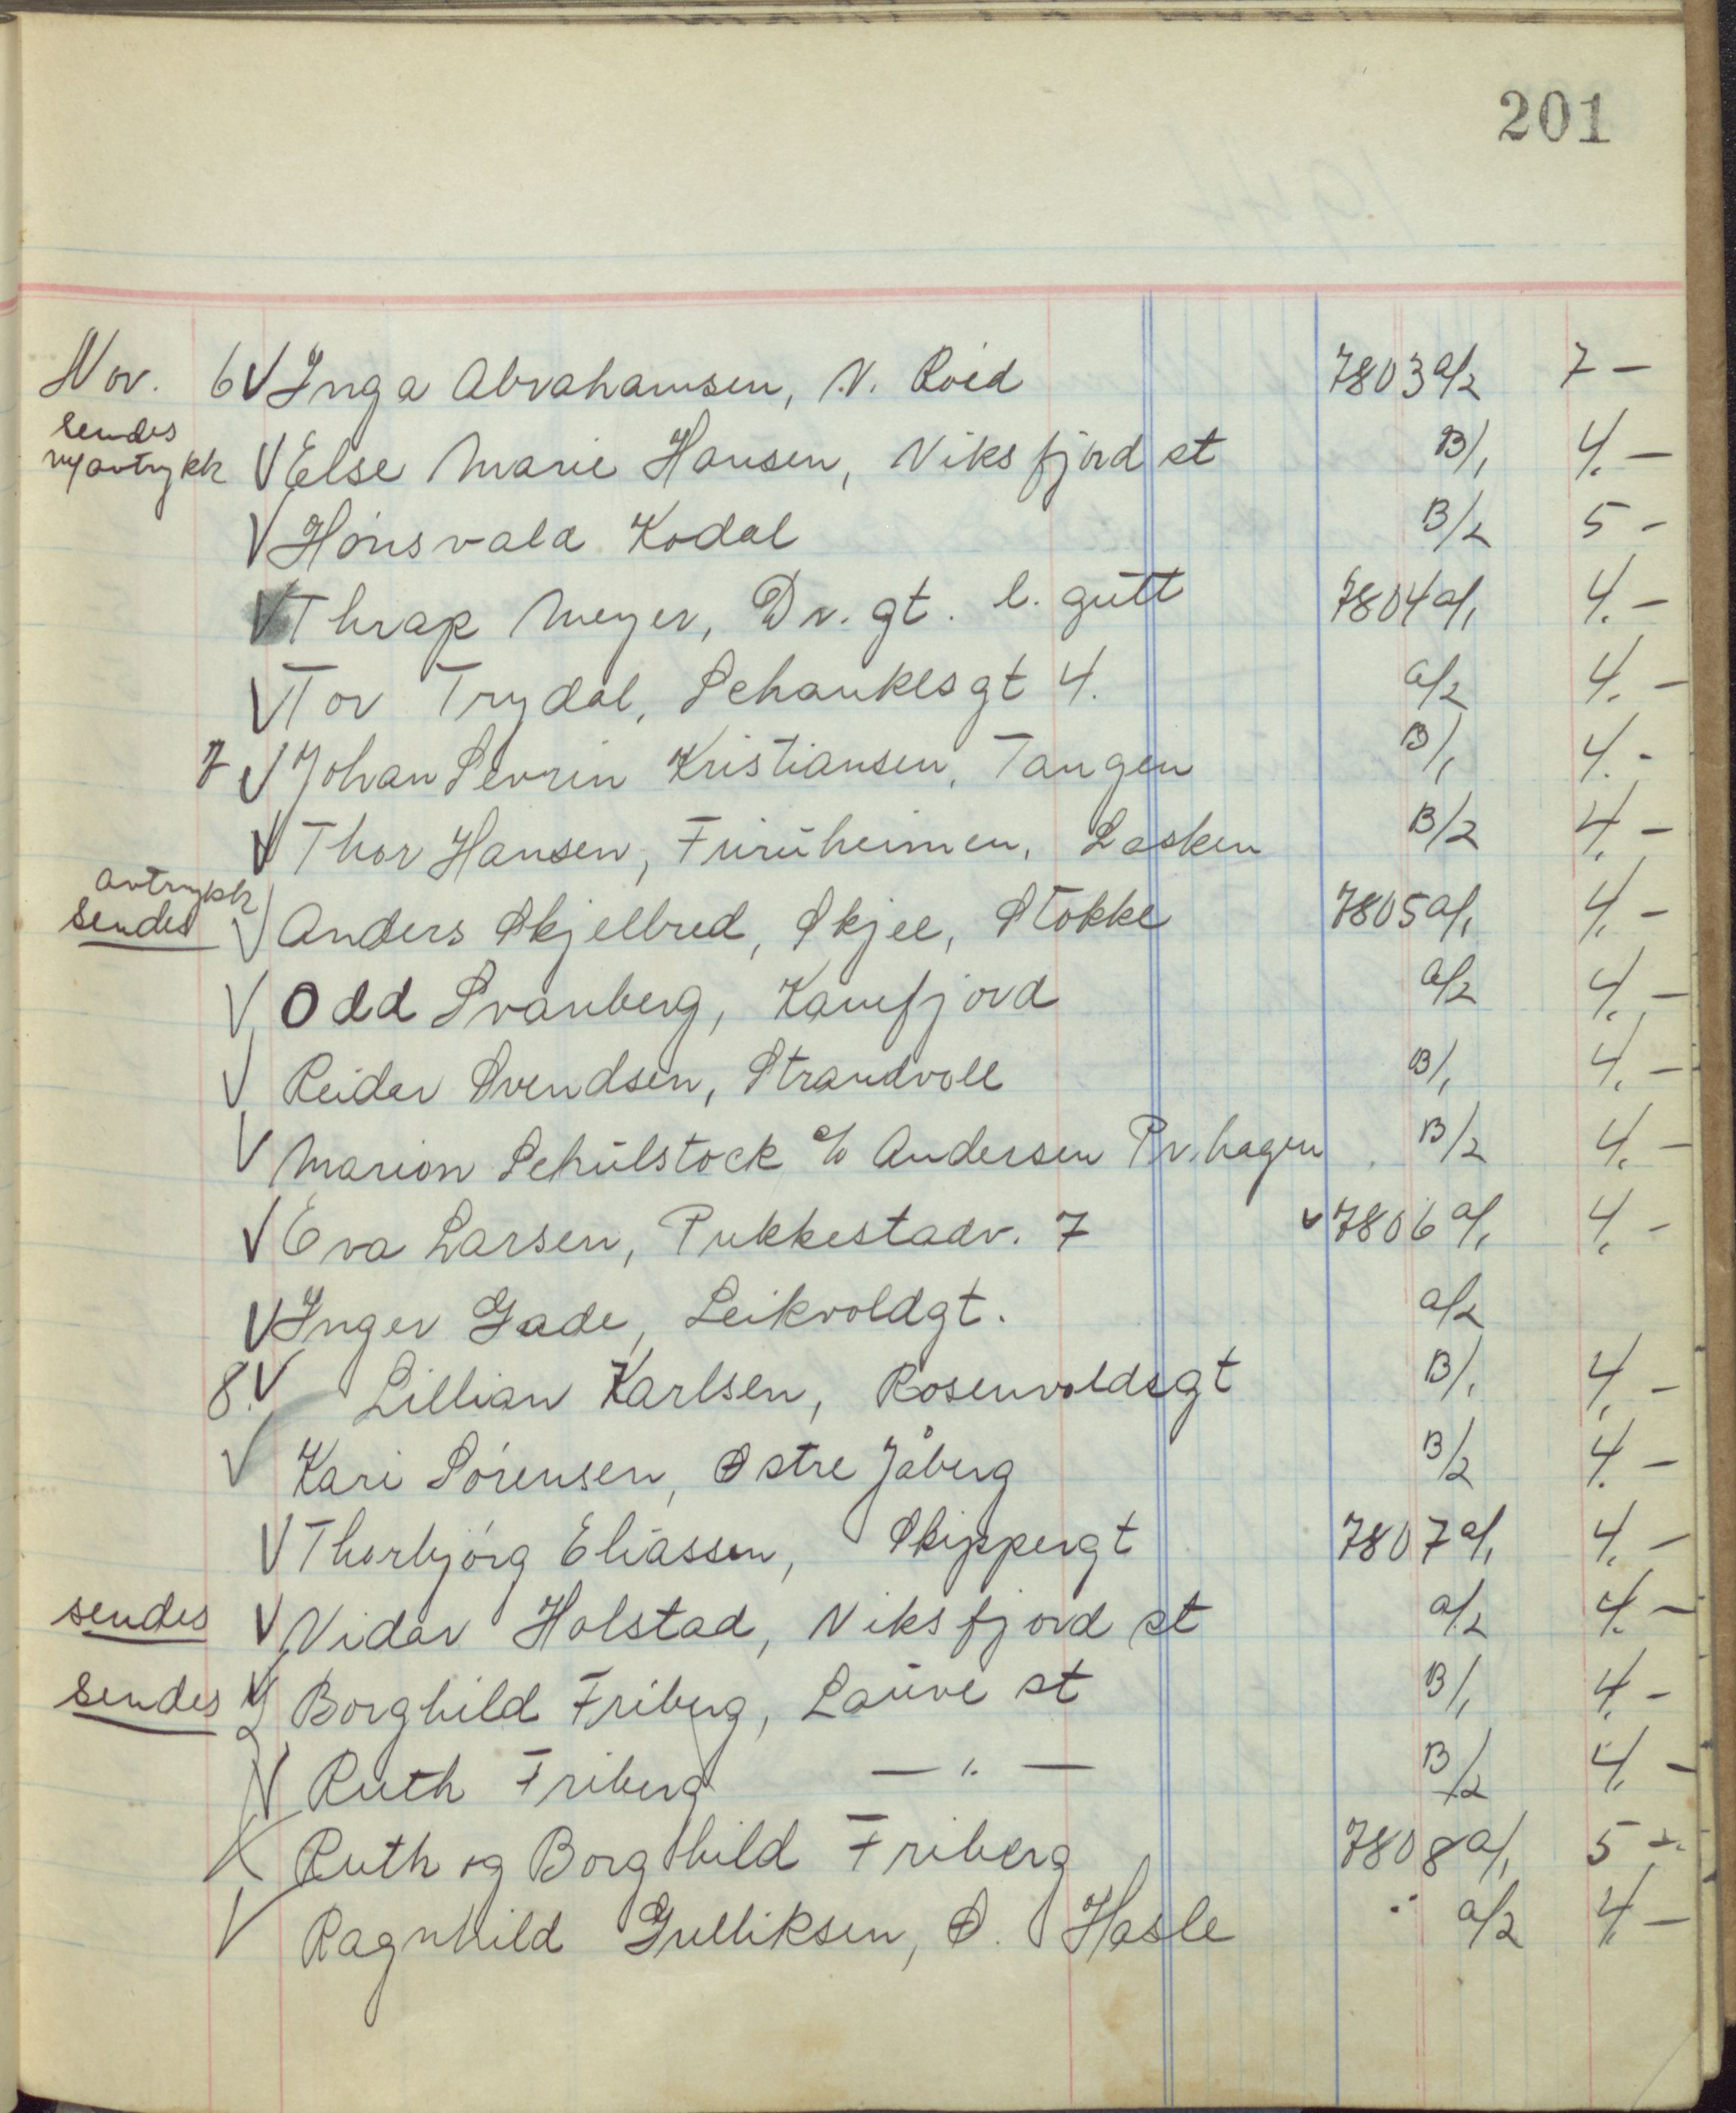 201
Nov. 6 V Inga Abrahamsen, N. Roid 7803 a/2 7 —
sendes
ny avtrykk V Else Marie Hansen, Viksfjord st B/1 4. —
V Hónsvala Kodal B/2 5 -
V Thrap Meyer, Dr. gt. l. gutt 7804 a/1 4. —
V Tor Trydal, Schankesgt 4. a/2 4. —
7 V Johan Sevrin Kristiansen, Tangen B/1 4. -
V Thor Hansen, Furuheimen, Lasken B/2 4. —
avtrykk
sendes V Anders Skjelbred, Skjee, Stokke 7805 a/1 4. —
V Odd Svanberg, Kamfjord a/2 4. —
V Reidar Svendsen, Strandvoll B/1 4. —
V Marion Schülstock c/o Andersen Pr. hagen B/2 4. —
V Eva Larsen, Pukkestadv. 7 v 7806 a/1 4. -
V Inger Gade, Leikvoldgt. a/2
8. V Lillian Karlsen, Rosenvoldsgt B/1 4. —
V Kari Sórensen, Østre Jåberg B/2 4. —
V Thorbjórg Eliassen, Skippergt 7807 a/1 4. —
sendes V Vidar Holstad, Viksfjord st a/2 4. —
sendes V Borghild Friberg, Lauve st B/1 4. —
V Ruth Friberg — " — B/2 4. —
Ruth og Borghild Friberg 7808 a/1 5 —
V Ragnhild Gulliksen, Ø. Hasle a/2 4. —